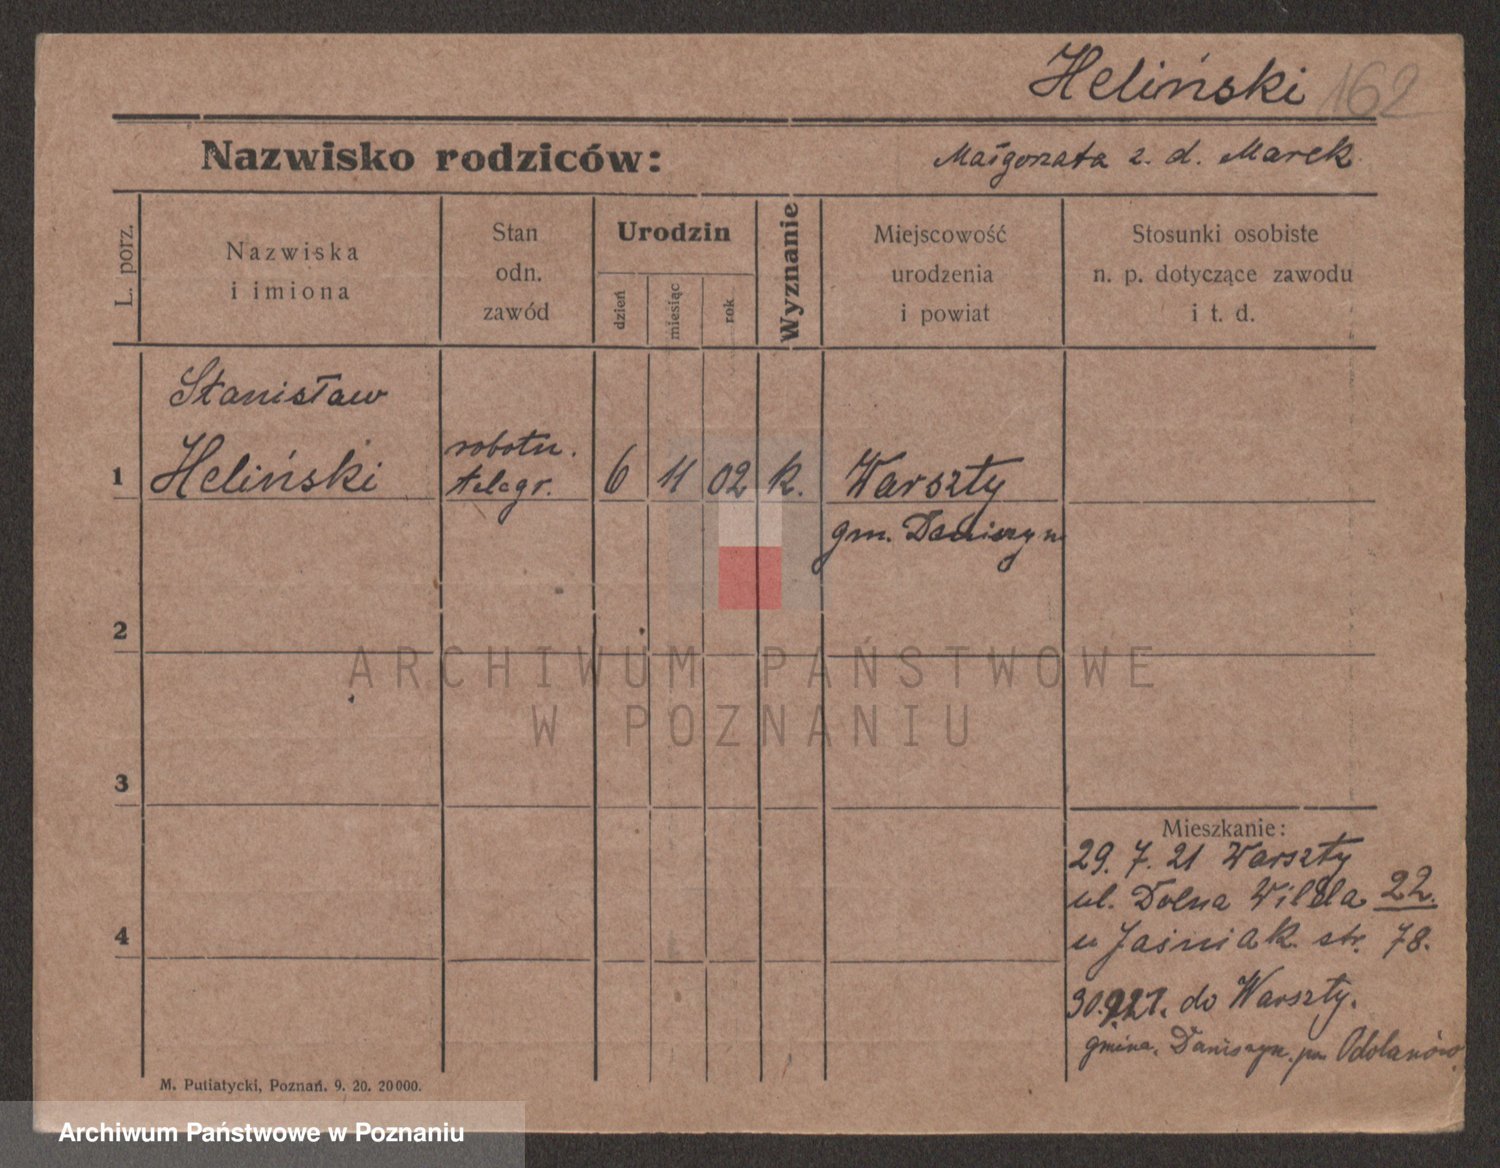 Heliński 162
Nazwisko rodziców:
Małgorzata z. d. Marek
L. porz.
Nazwiska
i imiona
Stan
odn.
zawód
Urodzin
dzień
miesiąc
rok
Wyznanie
Miejscowość
urodzenia
i powiat
Stosunki osobiste
n. p. dotyczące zawodu
i t. d.
Stanisław
1 Heliński
robotn.
telegr.
6 11 02 k.
Warszty
gm. Daniszyn
2
3
4
ARCHIWUM PAŃSTWOWE
W POZNANIU
Mieszkanie:
29. 7. 21 Warszty
ul. Dolna Wilda 22.
u Jaśniak str. 78.
30.9.21. do Warszty.
gmina. Daniszyn. pow Odolanów
M. Putiatycki, Poznań. 9. 20. 20000.
Archiwum Państwowe w Poznaniu